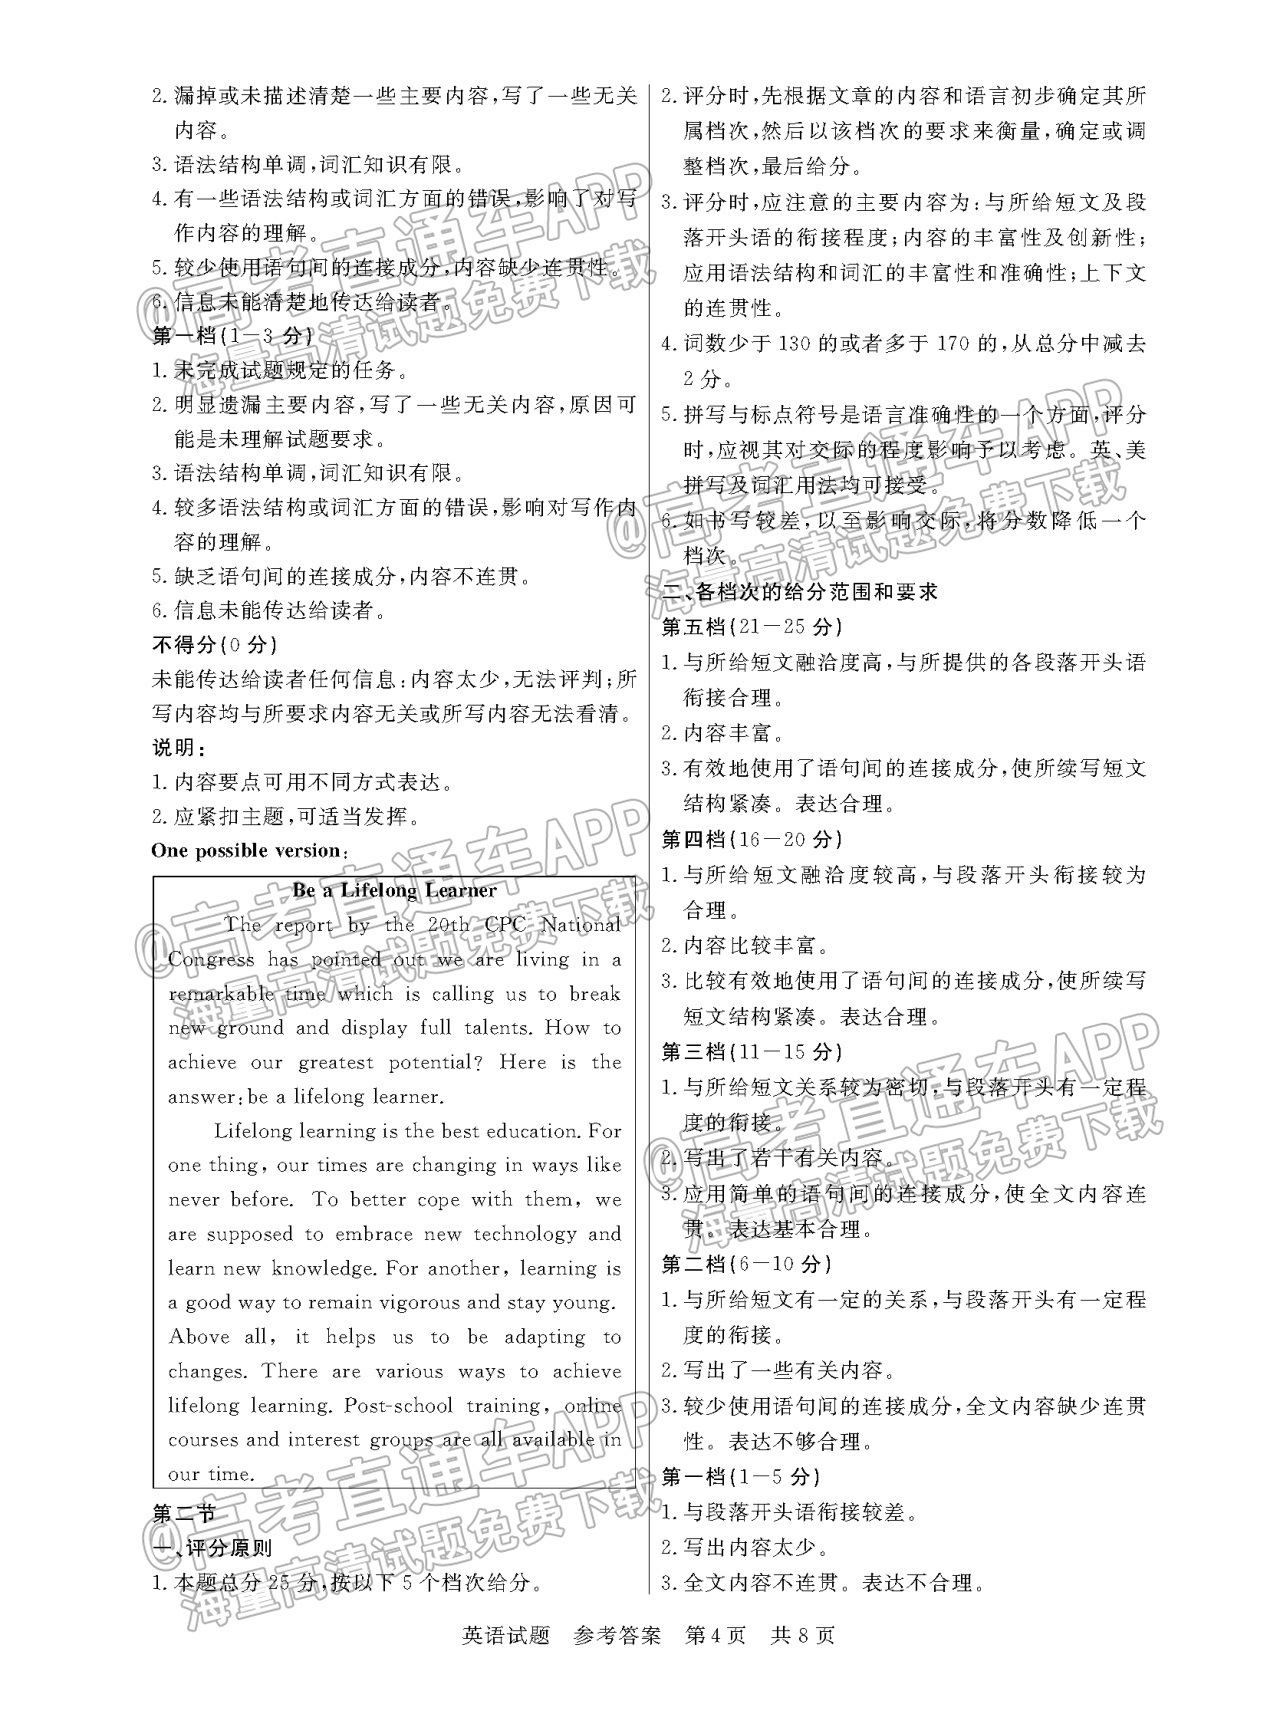 2. 漏掉或未描述清楚一些主要内容,写了一些无关
内容。
3. 语法结构单调,词汇知识有限。
4. 有一些语法结构或词汇方面的错误,影响了对写
作内容的理解。
5. 较少使用语句间的连接成分,内容缺少连贯性。
6. 信息未能清楚地传达给读者。
第一档(1-3 分)
1. 未完成试题规定的任务。
2. 明显遗漏主要内容,写了一些无关内容,原因可
能是未理解试题要求。
3. 语法结构单调,词汇知识有限。
4. 较多语法结构或词汇方面的错误,影响对写作内
容的理解。
5. 缺乏语句间的连接成分,内容不连贯。
6. 信息未能传达给读者。
不得分(0 分)
未能传达给读者任何信息:内容太少,无法评判;所
写内容均与所要求内容无关或所写内容无法看清。
说明:
1. 内容要点可用不同方式表达。
2. 应紧扣主题,可适当发挥。
One possible version:
Be a Lifelong Learner
The report by the 20th CPC National
Congress has pointed out we are living in a
remarkable time which is calling us to break
new ground and display full talents. How to
achieve our greatest potential? Here is the
answer: be a lifelong learner.
Lifelong learning is the best education. For
one thing, our times are changing in ways like
never before. To better cope with them, we
are supposed to embrace new technology and
learn new knowledge. For another, learning is
a good way to remain vigorous and stay young.
Above all, it helps us to be adapting to
changes. There are various ways to achieve
lifelong learning. Post-school training, online
courses and interest groups are all available in
our time.
第二节
一、评分原则
1. 本题总分 25 分,按以下 5 个档次给分。
2. 评分时,先根据文章的内容和语言初步确定其所
属档次,然后以该档次的要求来衡量,确定或调
整档次,最后给分。
3. 评分时,应注意的主要内容为:与所给短文及段
落开头语的衔接程度;内容的丰富性及创新性;
应用语法结构和词汇的丰富性和准确性;上下文
的连贯性。
4. 词数少于 130 的或者多于 170 的,从总分中减去
2 分。
5. 拼写与标点符号是语言准确性的一个方面,评分
时,应视其对交际的程度影响予以考虑。英、美
拼写及词汇用法均可接受。
6. 如书写较差,以至影响交际,将分数降低一个
档次。
二、各档次的给分范围和要求
第五档(21-25 分)
1. 与所给短文融洽度高,与所提供的各段落开头语
衔接合理。
2. 内容丰富。
3. 有效地使用了语句间的连接成分,使所续写短文
结构紧凑。表达合理。
第四档(16-20 分)
1. 与所给短文融洽度较高,与段落开头衔接较为
合理。
2. 内容比较丰富。
3. 比较有效地使用了语句间的连接成分,使所续写
短文结构紧凑。表达合理。
第三档(11-15 分)
1. 与所给短文关系较为密切,与段落开头有一定程
度的衔接。
2. 写出了若干有关内容。
3. 应用简单的语句间的连接成分,使全文内容连
贯。表达基本合理。
第二档(6-10 分)
1. 与所给短文有一定的关系,与段落开头有一定程
度的衔接。
2. 写出了一些有关内容。
3. 较少使用语句间的连接成分,全文内容缺少连贯
性。表达不够合理。
第一档(1-5 分)
1. 与段落开头语衔接较差。
2. 写出内容太少。
3. 全文内容不连贯。表达不合理。
英语试题 参考答案 第 4 页 共 8 页
@高考直通车APP
海量高清试题免费下载
@高考直通车APP
海量高清试题免费下载
@高考直通车APP
海量高清试题免费下载
@高考直通车APP
海量高清试题免费下载
@高考直通车APP
海量高清试题免费下载